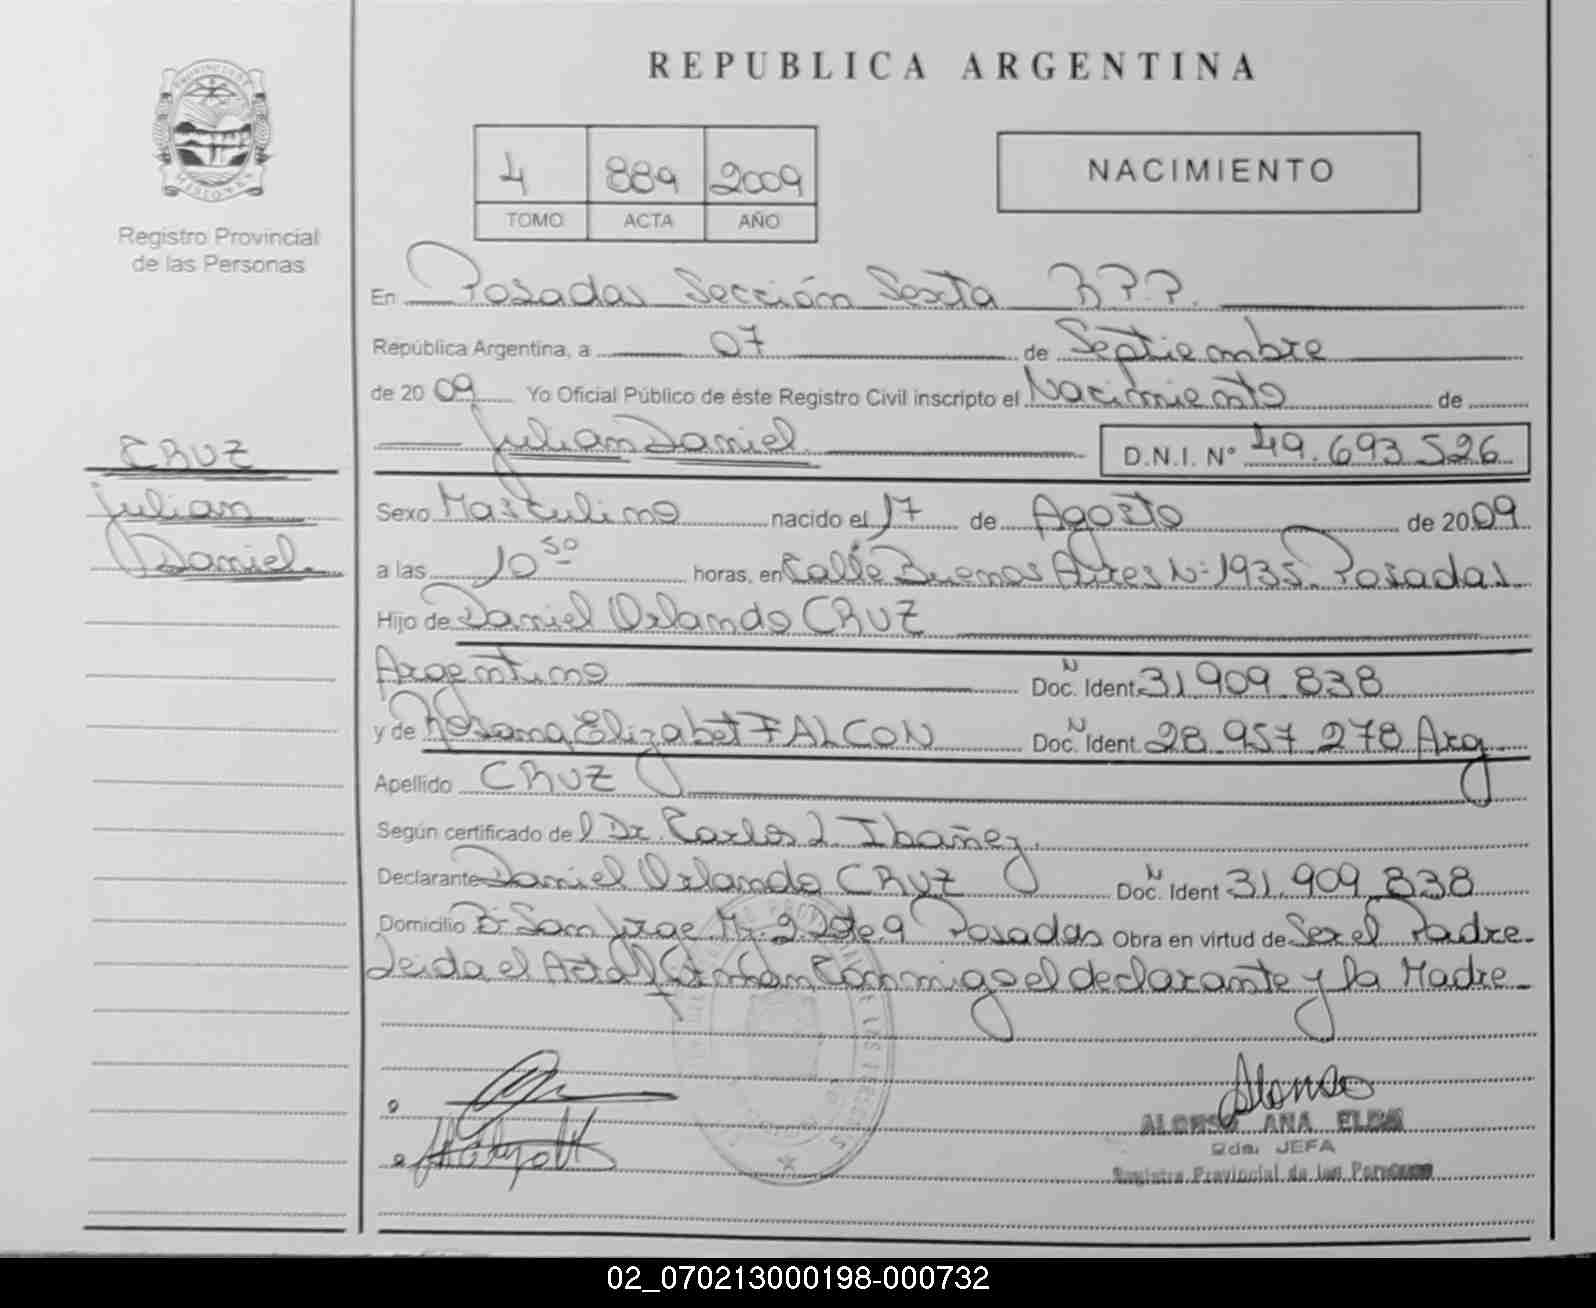 REPUBLICA ARGENTINA
4 889 2009
TOMO ACTA AÑO
NACIMIENTO
MISIONES
Registro Provincial
de las Personas
CRUZ
Julian
Daniel
En Posadas Sección Sexta R.P.P.
República Argentina, a 07 de Septiembre
de 2009 Yo Oficial Público de éste Registro Civil inscripto el Nacimiento de
Julian Daniel D.N.I. Nº 49.693.526
Sexo Masculino nacido el 17 de Agosto de 2009
a las 10 50 horas, en Calle Buenos Aires Nº 1935 Posadas
Hijo de Daniel Orlando CRUZ
Argentino Doc. Ident. N 31 909 838
y de Rosana Elizabet FALCON Doc. Ident. N 28.957 278 Arg
Apellido CRUZ
Según certificado del Dr. Carlos Ibañez.
Declarante Daniel Orlando CRUZ Doc. Ident N 31.909 838
Domicilio Bº San Jorge Posadas Obra en virtud de Ser el Padre
Leida el Acta Conmigo el declarante y la Madre
Alonso
ALONSO ANA ELBA
JEFA
Registro Provincial de las Personas
02_070213000198-000732